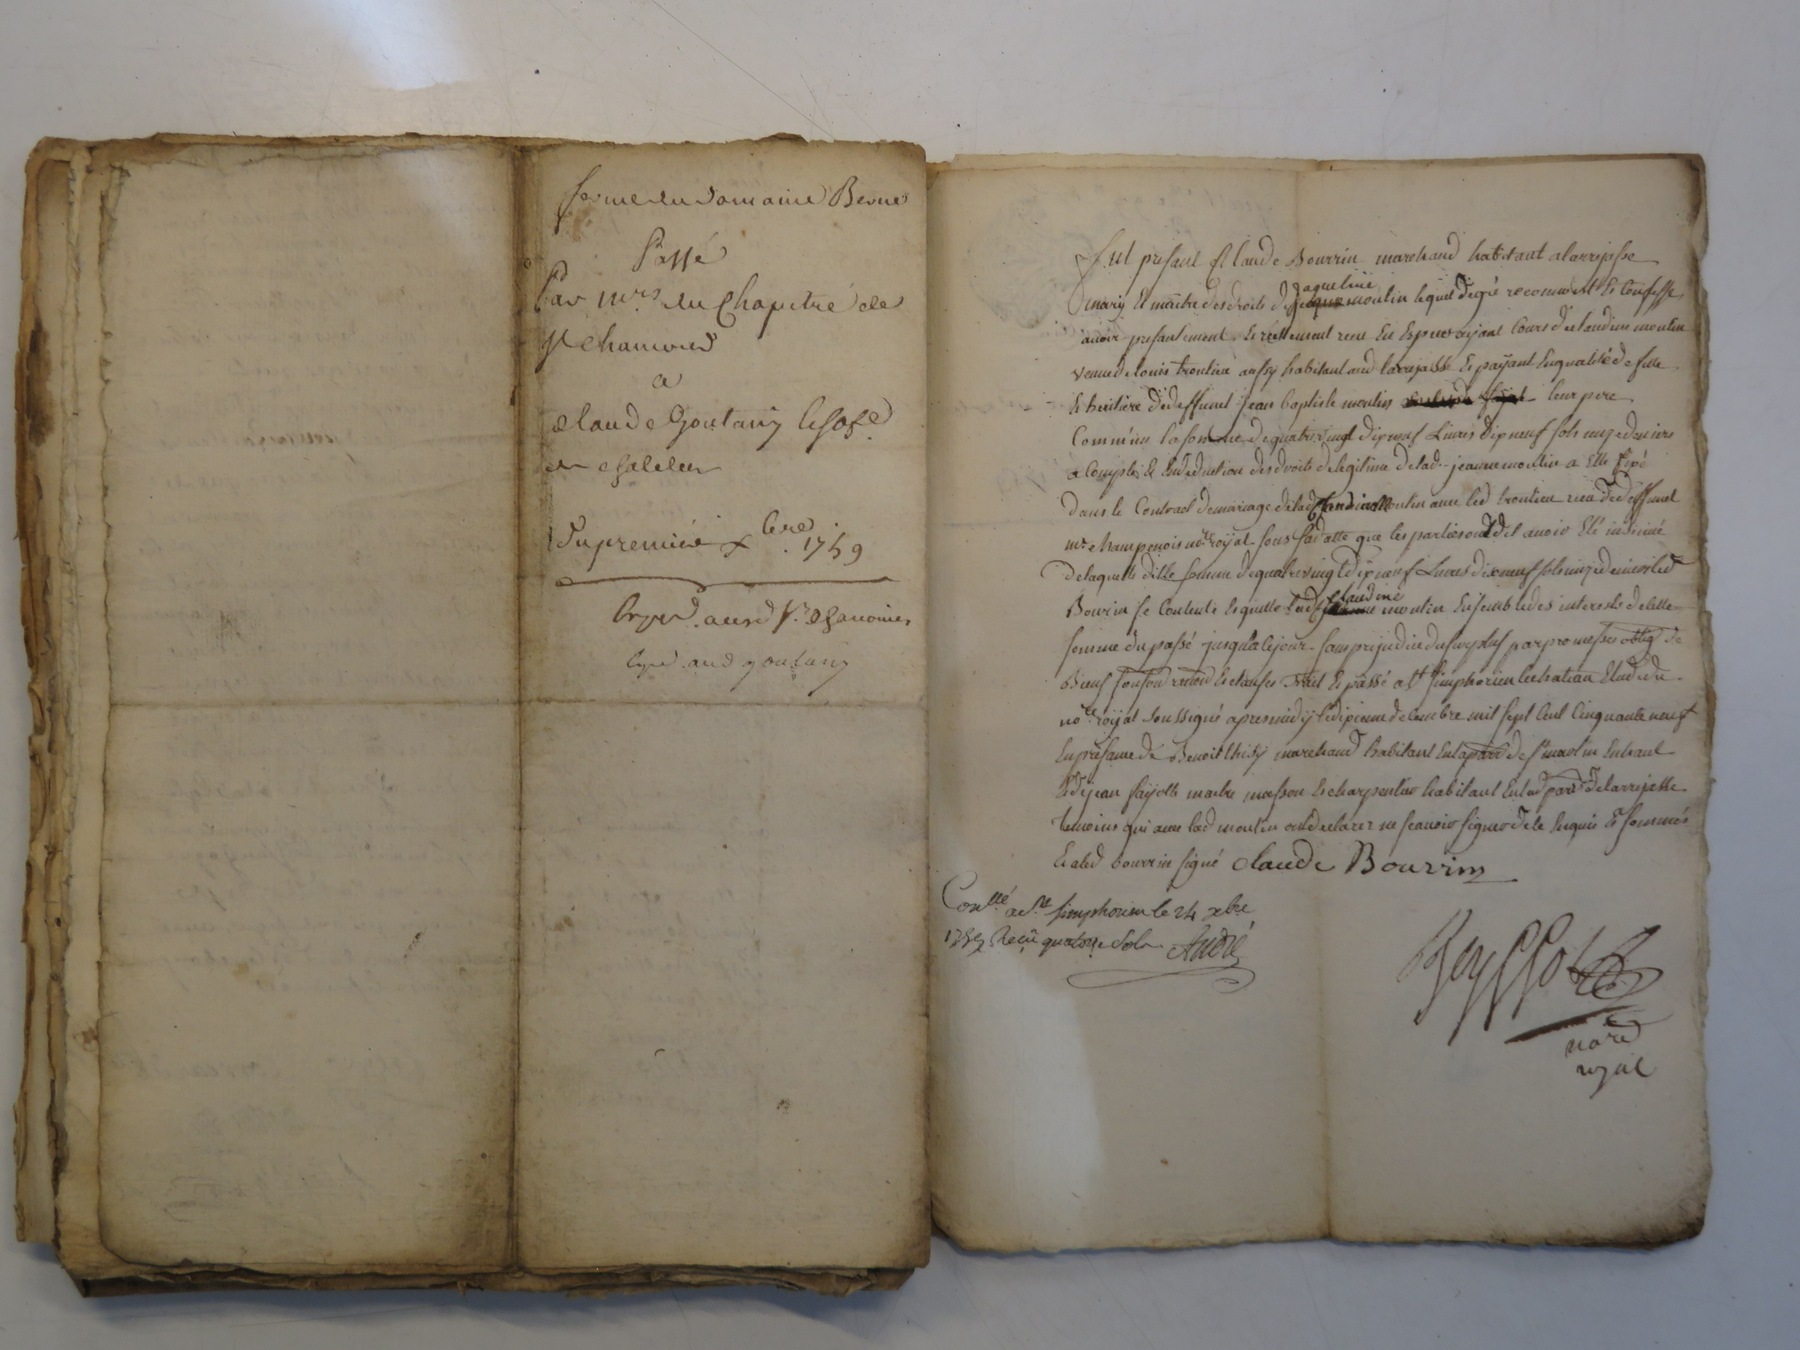 ferme du domaine Berne
Passé
Par mrs du Chapitre de
St chamond
a
claude Goutany
Du premier xbre 1759
Expd. aud Sr. chanoines
Expd. aud goutany
fut presant Claude Bourrin marchand habitant alarrajasse
mary Et maitre des droits de jaqueline moulin lequel degré reconnoist Et Confesse
avoir presantement Et réellement receu En Especes ayant Cours de Claudine moulin
veuve de louis troulieu aussy habitant aud larrajasse Et payant En qualité de fille
Et heritière dedeffunct jean baptiste moulin leur pere
Commun la somme de quatre vingt dixneuf Livres Dixneuf sols unze deniers
a Compte Et En deduction des droits de legitime delad. jeanne moulin a Elle fixé
dans le Contract demariage delad Claudine Moulin avec led troulieu receu dedeffunct
mr champenois nore royal sous sa datte que les parties ont dit avoir Eté insinué
de laquelle ditte somme de quatre vingt dixneuf Livres dixneuf sols unze deniers led
Bourrin se Contente Et quitte lad Claudine moulin Ensemble des interests de cette
somme du passé jusqua cejour sans prejudice du surplus par promesses oblig de
Biens Et clauses fait Et passé a St simphorien lechateau Etude du
nore royal soussigné apres midy le dixieme decembre mil sept Cent Cinquante neuf
En presance de Benoit marchand habitant En la parr de st martin En haut
Et de jean fayolle maitre masson Et charpentier habitant En lad parr de larrajasse
temoins qui avec lad moulin ont declarer ne scavoir signer de ce Enquis Et sommés
Et a led bourrin signé claude Bourrin
Conllé a St simphorien le 24 xbre
1759 Reçu quatorze sols André
nore
royal